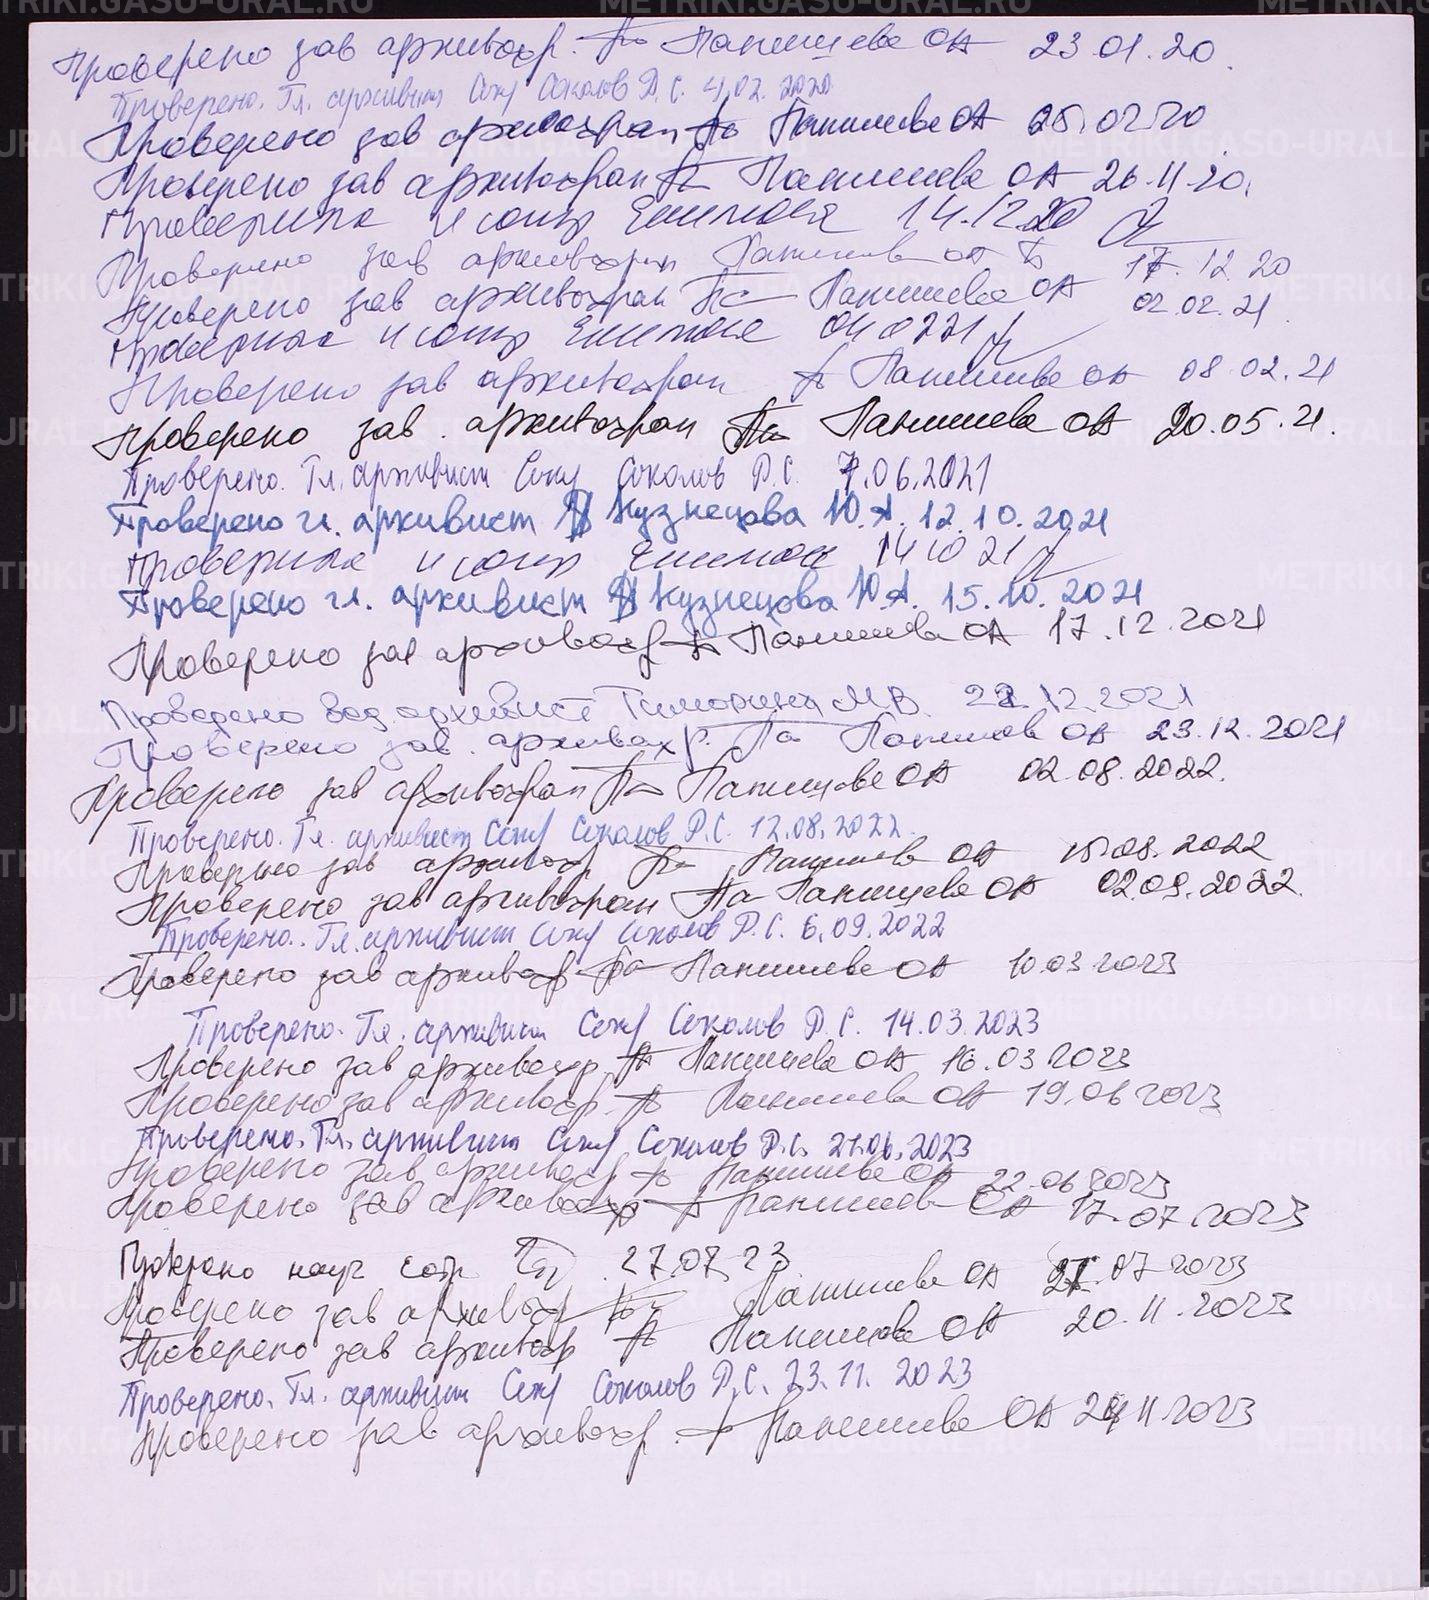 Проверено зав архивохр. Панишева ОА 23.01.20.
Проверено. Гл. архивист Соколов Д.С. 4.02.2020
Проверено зав архивохран Панишева ОА 25.02.20
Проверено зав архивохран Панишева ОА 26.11.20.
Проверила н сотр 14.12.20
Проверено зав архивохран Панишева ОА 17.12.20
Проверено зав архивохран Панишева ОА 02.02.21.
Проверила н сотр 04 02 21
Проверено зав архивохран Панишева ОА 08.02.21
Проверено зав. архивохран Панишева ОА 20.05.21.
Проверено. Гл. архивист Соколов Д.С. 7.06.2021
Проверено гл. архивист Кузнецова Ю.А. 12.10.2021
Проверила н сотр 14 10 21
Проверено гл. архивист Кузнецова Ю.А. 15.10.2021
Проверено зав архивохр Панишева ОА 17.12.2021
Проверено вед. архивист М.В. 22.12.2021
Проверено зав. архивохр. Панишева ОА 23.12.2021
Проверено зав архивохран Панишева ОА 02.08.2022.
Проверено. Гл. архивист Соколов Д.С. 12.08.2022.
Проверено зав архивохр Панишева ОА 2022
Проверено зав архивохран Панишева ОА 02.09.2022.
Проверено. Гл. архивист Соколов Д.С. 6.09.2022
Проверено зав архивохр Панишева ОА 10.03 2023
Проверено. Гл. архивист Соколов Д.С. 14.03.2023
Проверено зав архивохр Панишева ОА 16.03 2023
Проверено зав архивохр. Панишева ОА 19.06 2023
Проверено. Гл. архивист Соколов Д.С. 21.06.2023
Проверено зав архивохр Панишева ОА 22.06 2023
Проверено зав архивохр Панишева ОА 17.07.2023
Проверено науч сотр 27.07.23
Проверено зав архивохр Панишева ОА 07 2023
Проверено зав архивохр Панишева ОА 20.11.2023
Проверено. Гл. архивист Соколов Д.С. 23.11.2023
Проверено зав архивохр. Панишева ОА 24 11 2023
METRIKI.GASO-URAL.RU